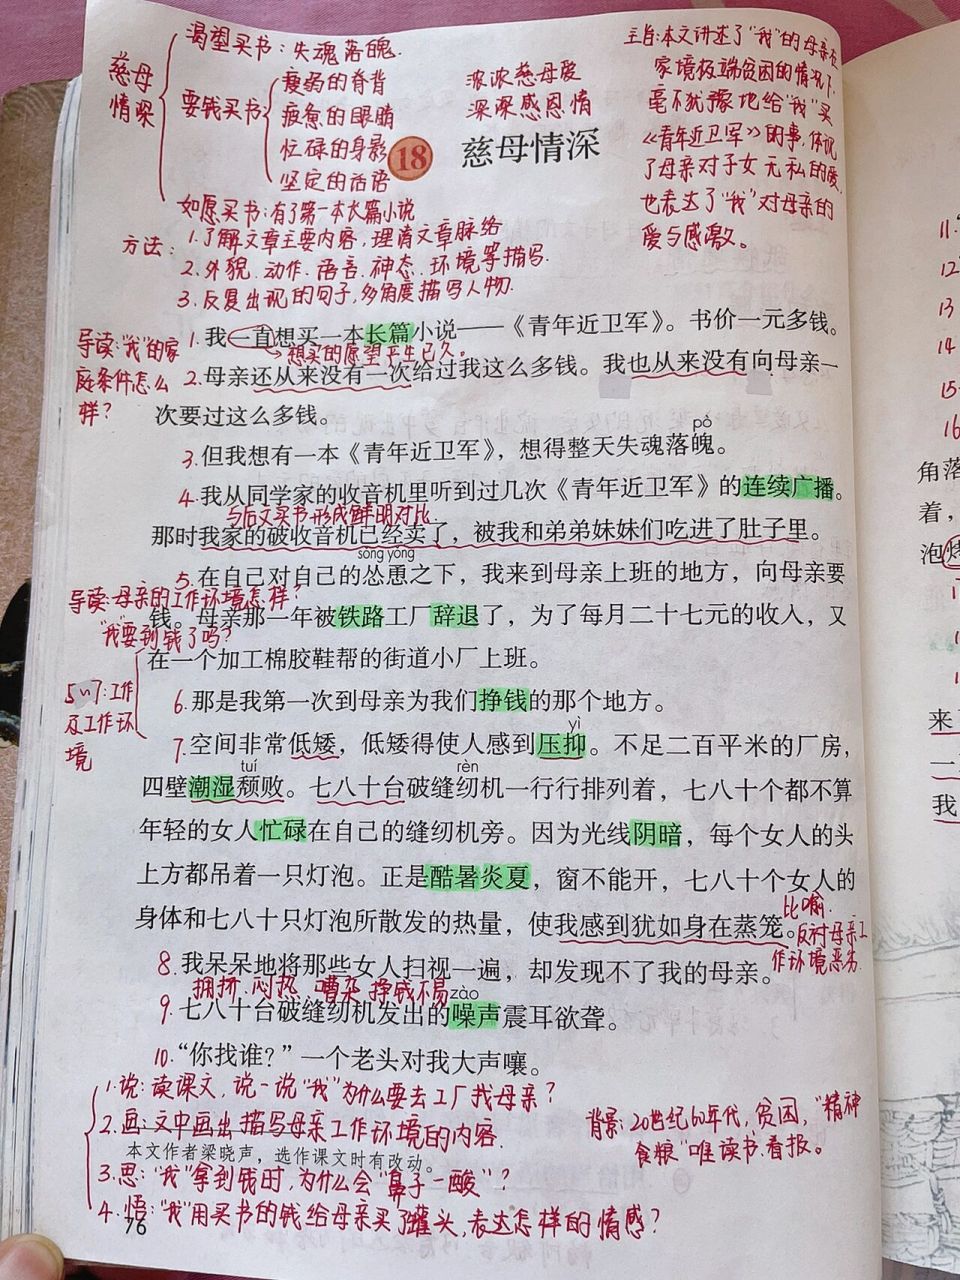 慈母情深
渴望买书：失魂落魄.
要钱买书
瘦弱的脊背
疲惫的眼睛
忙碌的身影
坚定的话语
如愿买书：有了第一本长篇小说
浓浓慈母爱
深深感恩情
18 慈母情深
主旨：本文讲述了“我”的母亲在
家境极端贫困的情况下.
毫不犹豫地给“我”买
《青年近卫军》的事，体现
了母亲对子女无私的爱，
也表达了“我”对母亲的
爱与感激。
方法：1.了解文章主要内容，理清文章脉络
2.外貌.动作.语言.神态.环境等描写.
3.反复出现的句子，多角度描写人物.
导读：“我”的家
庭条件怎么
样？
1.我一直想买一本长篇小说——《青年近卫军》。书价一元多钱。
想买的愿望产生已久。
2.母亲还从来没有一次给过我这么多钱。我也从来没有向母亲一
次要过这么多钱。
pò
3.但我想有一本《青年近卫军》，想得整天失魂落魄。
4.我从同学家的收音机里听到过几次《青年近卫军》的连续广播。
与后文买书形成鲜明对比
那时我家的破收音机已经卖了，被我和弟弟妹妹们吃进了肚子里。
sǒng yǒng
5.在自己对自己的怂恿之下，我来到母亲上班的地方，向母亲要
导读：母亲的工作环境怎样？
“我”要到钱了吗？
钱。母亲那一年被铁路工厂辞退了，为了每月二十七元的收入，又
在一个加工棉胶鞋帮的街道小厂上班。
5~7：工作
及工作环
境
6.那是我第一次到母亲为我们挣钱的那个地方。
yì
7.空间非常低矮，低矮得使人感到压抑。不足二百平米的厂房，
tuí rèn
四壁潮湿颓败。七八十台破缝纫机一行行排列着，七八十个都不算
年轻的女人忙碌在自己的缝纫机旁。因为光线阴暗，每个女人的头
上方都吊着一只灯泡。正是酷暑炎夏，窗不能开，七八十个女人的
身体和七八十只灯泡所散发的热量，使我感到犹如身在蒸笼。
比喻.
反衬母亲工
作环境恶劣
8.我呆呆地将那些女人扫视一遍，却发现不了我的母亲。
拥挤.闷热 嘈杂 挣钱不易
zào
9.七八十台破缝纫机发出的噪声震耳欲聋。
10.“你找谁？”一个老头对我大声嚷。
1.说：读课文，说一说“我”为什么要去工厂找母亲？
2.画：文中画出描写母亲工作环境的内容.
本文作者梁晓声，选作课文时有改动。
3.思：“我”拿到钱时，为什么会“鼻子一酸”？
4.悟：“我”用买书的钱给母亲买了罐头，表达怎样的情感？
背景：20世纪60年代，贫困，“精神
食粮”唯读书.看报。
76
11.“
12
13
14
15
16
角落
着，
泡
来
一
我